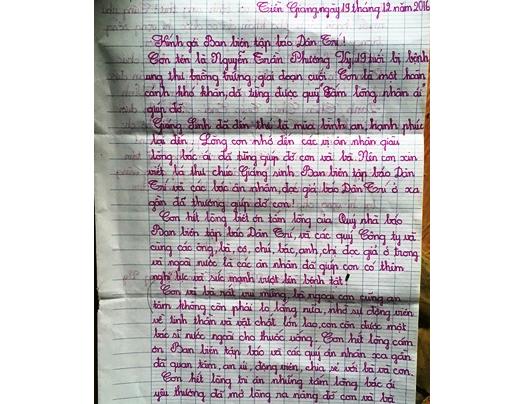 Tiền Giang, ngày 19 tháng 12 năm 2016
Kính gởi Ban biên tập báo Dân Trí!
Con tên là Nguyễn Trần Phương Vy, 19 tuổi bị bệnh
ung thư buồng trứng, giai đoạn cuối. Con là một hoàn
cảnh khó khăn, đã từng được quỹ Tấm lòng nhân ái
giúp đỡ.
Giáng Sinh đã đến thế là mùa bình an, hạnh phúc
lại đến. Lòng con nhớ đến các vị ân nhân giàu
lòng bác ái đã từng giúp đỡ con và bà. Nên con xin
viết lá thư chúc Giáng sinh Ban biên tập báo Dân
Trí và các bác ân nhân, đọc giả báo Dân Trí ở xa
gần đã thương giúp đỡ con!
Con hết lòng biết ơn tấm lòng của Quý nhà báo
Ban biên tập báo Dân Trí và các quý Công ty và
cùng các ông, bà, cô, chú, bác, anh, chị đọc giả ở trong
và ngoài nước là các ân nhân đã giúp con có thêm
nghị lực và sức mạnh vượt lên bệnh tật!
Con và bà rất vui mừng, bà ngoại con cũng an
tâm không còn phải lo lắng nữa, nhờ sự động viên
về tinh thần và vật chất lớn lao, con còn được một
bác sĩ nước ngoài cho thuốc uống. Con hết lòng cám
ơn Ban biên tập báo và các quý ân nhân xa gần
đã quan tâm, an ủi, động viên, chia sẻ với bà và con.
Con hết lòng tri ân những tấm lòng bác ái
yêu thương đã mở lòng ra nâng đỡ con và bà